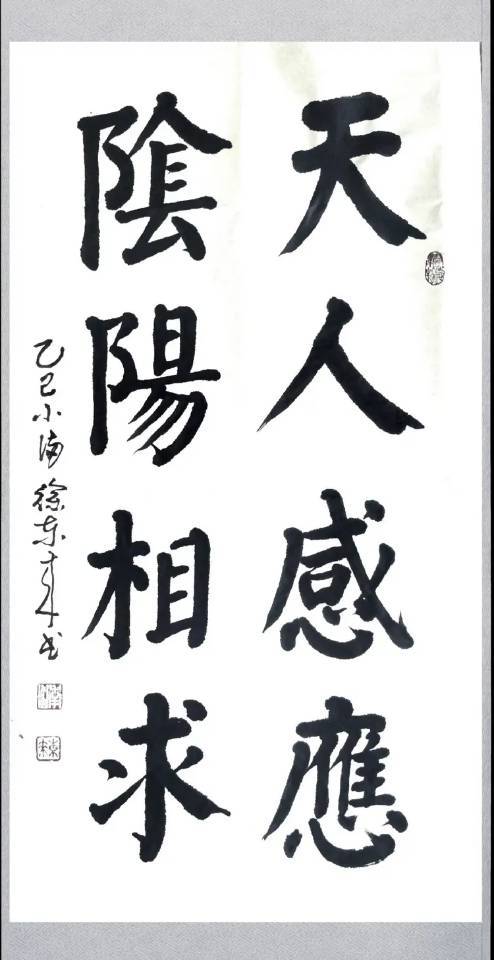 天人感應
陰陽相求
乙巳小满徐东书